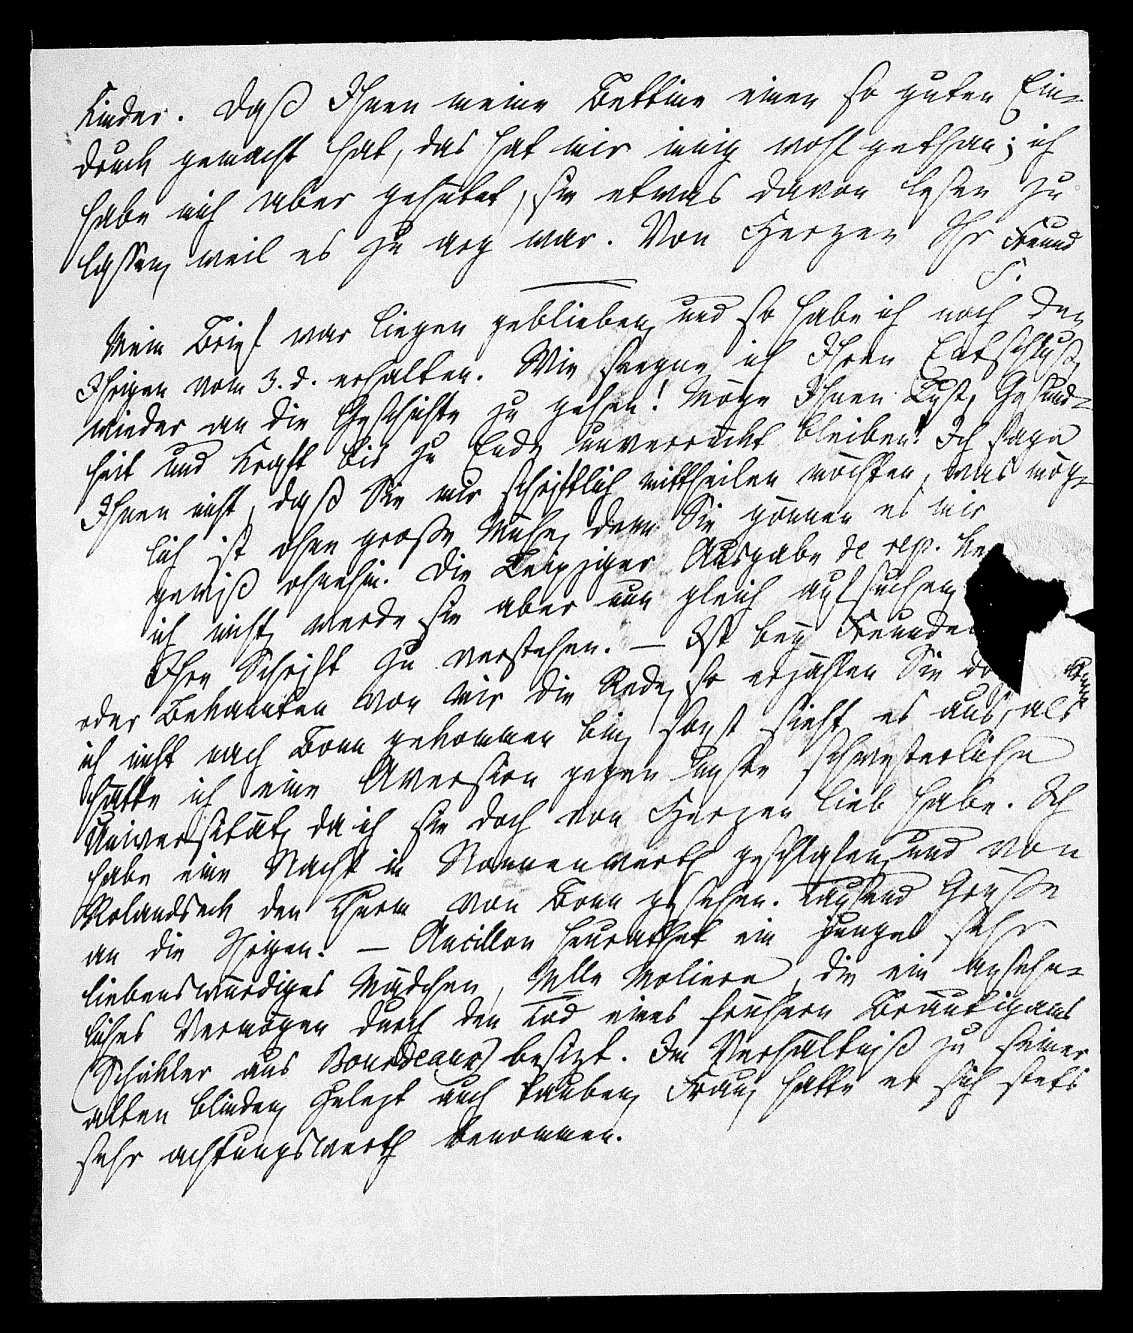 Kinder. Daß Ihnen meine Bettine einen so guten Ein-
druck gemacht hat, das hat mir innig wohl gethan; ich
habe mich aber gehütet, sie etwas davon lesen zu
lassen, weil es zu arg war. Von Herzen Ihr Freund
S.
Mein Brief war liegen geblieben, und so habe ich noch den
Ihrigen vom 3. d. erhalten. Wie seegne ich Ihren Entschluß,
wieder an die Geschichte zu gehen! Möge Ihnen Lust, Gesund-
heit und Kraft bis zu Ende unverrückt bleiben! Ich sage
Ihnen nicht, daß Sie mir schriftlich mittheilen möchten, was mög-
lich ist ohne große Mühe, denn Sie gönnen es mir
gewiß ohnehin. Die Leipziger Ausgabe de rep. ke
ich nicht, werde sie aber nun gleich aufsuchen,
Ihre Schrift zu verstehen. — Ist bey Freunden
oder Bekannten von mir die Rede, so erzählen Sie
ich nicht nach Bonn gekommen bin, sonst sieht es aus, als
hätte ich eine Aversion gegen unsre schwesterliche
Universität, da ich sie doch von Herzen lieb habe. Ich
habe eine Nacht in Nonnenwerth geschlafen, und von
Rolandseck den Thurm von Bonn gesehen. Tausend Grüße
an die Ihrigen. — Ancillon heurathet ein junges sehr
liebenswürdiges Mädchen, Mlle Moliere, die ein ansehn-
liches Vermögen durch den Tod eines frühern Bräutigams
(Schikler aus Bourdeaux) besizt. Im Verhältniß zu seiner
alten blinden, zulezt auch tauben, Frau, hatte er sich stets
sehr achtungswerth benommen.